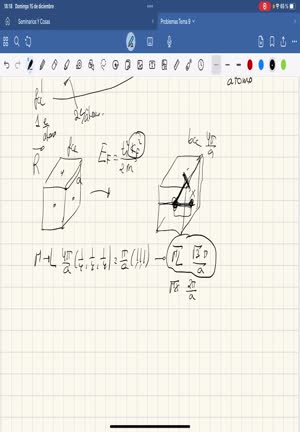 18:18 Domingo 15 de diciembre
Seminarios Y Cosas
Problemas Tema 9
átomo
1 e-
átomo
R
fcc
a
E_F = ħ² k_F² / 2m
bcc 4π/a
X
Γ → L 4π/a (1/4, 1/4, 1/4) = π/a (111) → ΓL √3 π/a
ΓX 2π/a